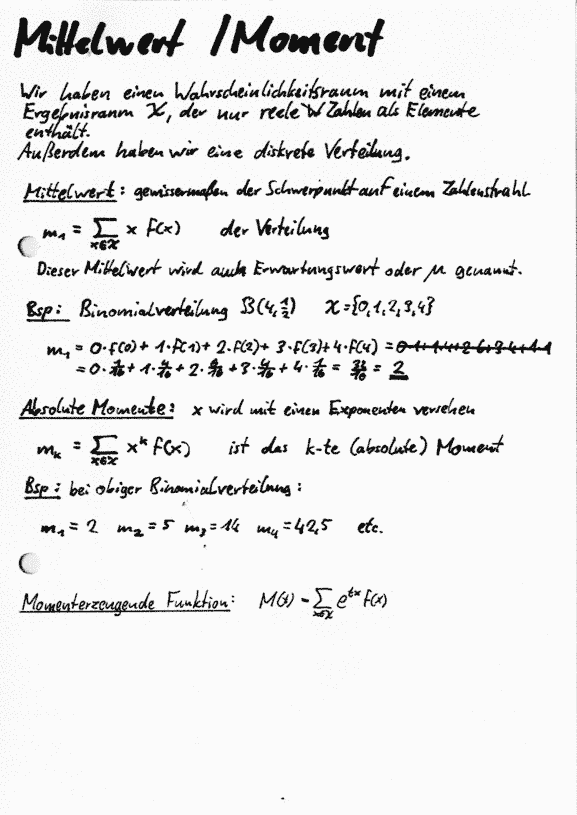 Mittelwert / Moment
Wir haben einen Wahrscheinlichkeitsraum mit einem
Ergebnisraum X, der nur reele Zahlen als Elemente
enthält.
Außerdem haben wir eine diskrete Verteilung.
Mittelwert: gewissermaßen der Schwerpunkt auf einem Zahlenstrahl
m₁ = ∑ x∈X x f(x) der Verteilung
Dieser Mittelwert wird auch Erwartungswert oder μ genannt.
Bsp: Binomialverteilung B(4, 1/2) X={0,1,2,3,4}
m₁ = 0·f(0) + 1·f(1) + 2·f(2) + 3·f(3) + 4·f(4) = 0·1+1·4+2·6+3·4+4·1
= 0·1/16 + 1·4/16 + 2·6/16 + 3·4/16 + 4·1/16 = 32/16 = 2
Absolute Momente: x wird mit einen Exponenten versehen
mₖ = ∑ x∈X xᵏ f(x) ist das k-te (absolute) Moment
Bsp: bei obiger Binomialverteilung:
m₁ = 2 m₂ = 5 m₃ = 14 m₄ = 42,5 etc.
Momenterzeugende Funktion: M(t) = ∑ x∈X eᵗˣ f(x)